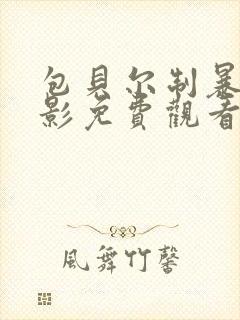 包貝尔制暴
影免費觀看
風舞竹馨